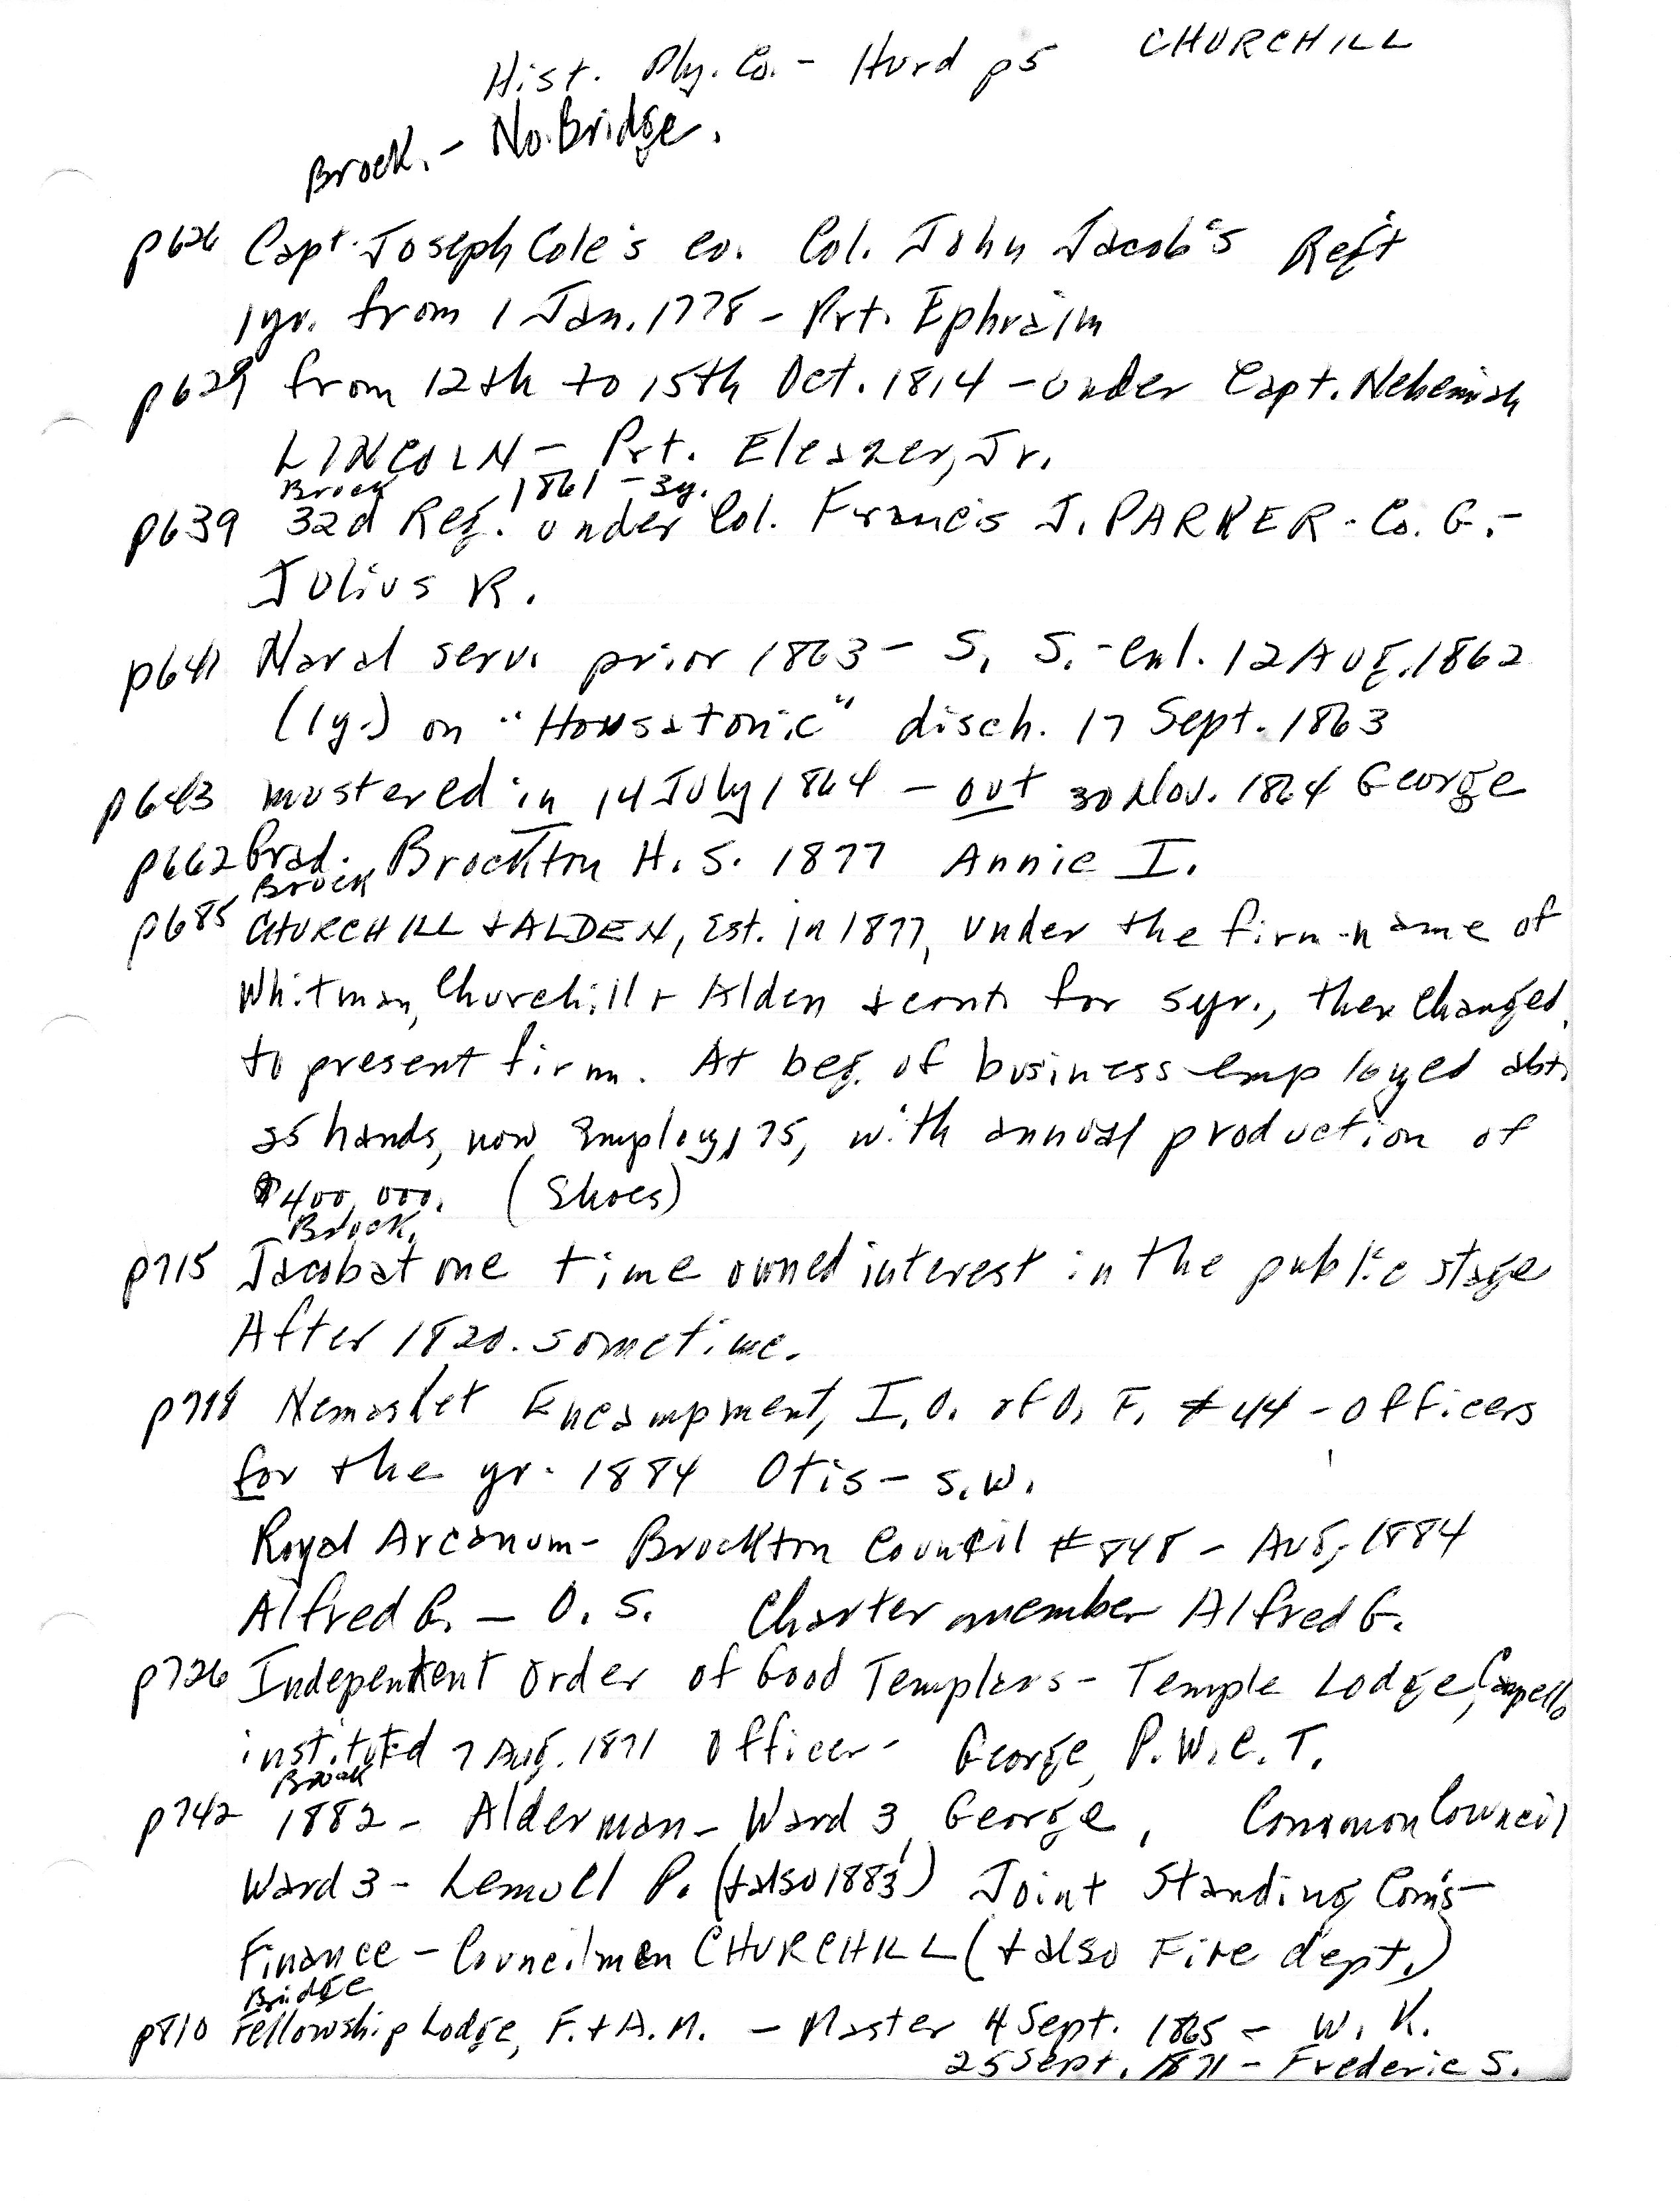 CHURCHILL
Hist. Ply. Co. - Hurd p5
Brock. - No. Bridge.
p626 Capt. Joseph Cole's co. Col. John Jacob's Reg't
1yr. from 1 Jan. 1778 - Prt. Ephraim
p629 from 12th to 15th Oct. 1814 - under Capt. Nehemiah
LINCOLN - Prt. Eleazer, Jr.
Brock 1861 - 3y.
p639 32d Reg. under Col. Francis J. PARKER - Co. G. -
Julius R.
p641 Naval serv. prior 1863 - S. S. - enl. 12 Aug. 1862
(1y.) on "Housatonic" disch. 17 Sept. 1863
p643 mustered in 14 July 1864 - out 30 Nov. 1864 George
p662 Grad. Brockton H. S. 1877 Annie I.
Brock
p685 CHURCHILL + ALDEN, Est. in 1877, under the firm-name of
Whitman, Churchill + Alden + cont. for 5yr., then changed
to present firm. At beg. of business employed abt.
25 hands, now employs 175, with annual production of
$400,000. (Shoes)
Brock.
p715 Jacob at one time owned interest in the public stage
After 1820. sometime.
p718 Nemasket Encampment, I. O. of O. F. #44 - officers
for the yr. 1884 Otis - S. W.
Royal Arcanum - Brockton Council #848 - Aug, 1884
Alfred G. - O. S. Charter member Alfred G.
p726 Independent Order of Good Templars - Temple Lodge, Campello
instituted 7 Aug. 1871 officer - George, P. W. C. T.
Brock
p742 1882 - Alderman - Ward 3, George, Common Council
Ward 3 - Lemuel P. (+ also 1883) Joint Standing Com's -
Finance - Councilmen CHURCHILL (+ also Fire dept.)
Bridge
p810 Fellowship Lodge, F. + A. M. - Master 4 Sept. 1865 - W. K.
25 Sept. 1871 - Frederic S.